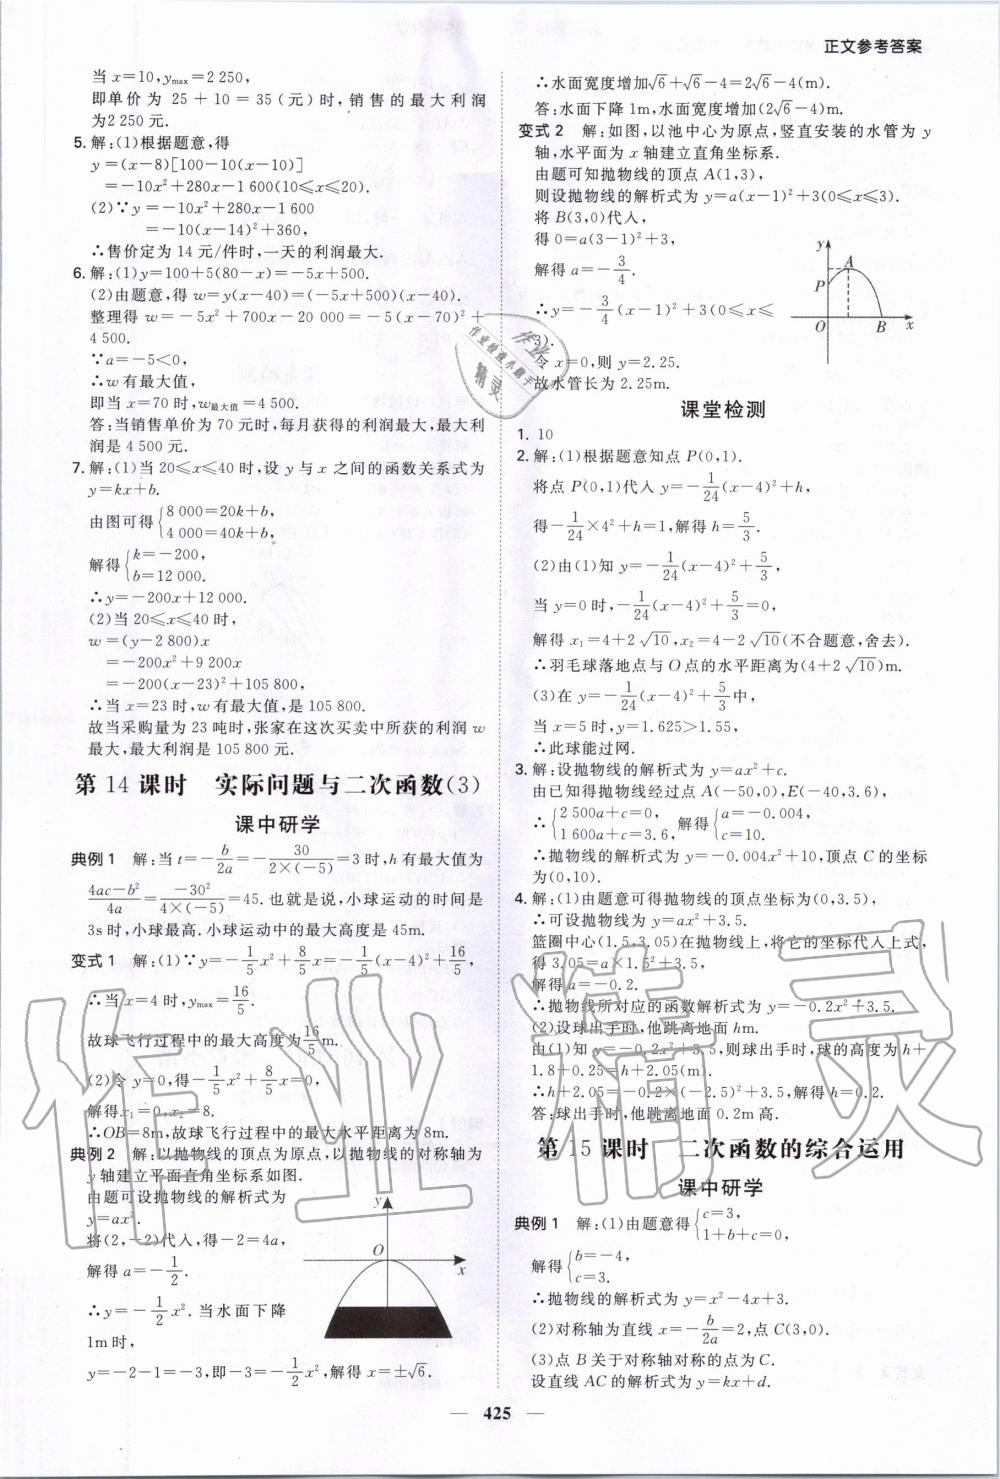 正文参考答案
当 x=10,ymax=2 250,
即单价为 25+10=35(元)时,销售的最大利润
为2 250 元.
5. 解:(1)根据题意,得
y=(x-8)[100-10(x-10)]
=-10x²+280x-1 600(10≤x≤20).
(2)∵y=-10x²+280x-1 600
=-10(x-14)²+360,
∴售价定为 14 元/件时,一天的利润最大.
6. 解:(1)y=100+5(80-x)=-5x+500.
(2)由题意,得 w=y(x-40)=(-5x+500)(x-40).
整理得 w=-5x²+700x-20 000=-5(x-70)²+
4 500.
∵a=-5<0,
∴w 有最大值,
即当 x=70 时,w最大值=4 500.
答:当销售单价为 70 元时,每月获得的利润最大,最大利
润是 4 500 元.
7. 解:(1)当 20≤x≤40 时,设 y 与 x 之间的函数关系式为
y=kx+b.
由图可得{8 000=20k+b,
4 000=40k+b,
解得{k=-200,
b=12 000.
∴y=-200x+12 000.
(2)当 20≤x≤40 时,
w=(y-2 800)x
=-200x²+9 200x
=-200(x-23)²+105 800,
∴当 x=23 时,w 有最大值,是 105 800.
故当采购量为 23 吨时,张家在这次买卖中所获的利润 w
最大,最大利润是 105 800 元.
第 14 课时 实际问题与二次函数(3)
课中研学
典例 1 解:当 t=-b/2a=-30/2×(-5)=3 时,h 有最大值为
4ac-b²/4a=-30²/4×(-5)=45. 也就是说,小球运动的时间是
3s 时,小球最高. 小球运动中的最大高度是 45m.
变式 1 解:(1)∵y=-1/5x²+8/5x=-1/5(x-4)²+16/5,
∴当 x=4 时,ymax=16/5.
故球飞行过程中的最大高度为16/5m.
(2)令 y=0,得-1/5x²+8/5x=0,
解得x₁=0,x₂=8.
∴OB=8m,故球飞行过程中的最大水平距离为 8m.
典例 2 解:以抛物线的顶点为原点,以抛物线的对称轴为
y 轴建立平面直角坐标系如图.
由题可设抛物线的解析式为
y=ax².
将(2,-2)代入,得-2=4a,
解得 a=-1/2.
∴y=-1/2x². 当水面下降
1m 时,
y=-2-1=-3,即-3=-1/2x²,解得 x=±√6.
y
O
x
∴水面宽度增加√6+√6-4=2√6-4(m).
答:水面下降 1m,水面宽度增加(2√6-4)m.
变式 2 解:如图,以池中心为原点,竖直安装的水管为 y
轴,水平面为 x 轴建立直角坐标系.
由题可知抛物线的顶点 A(1,3),
则设抛物线的解析式为 y=a(x-1)²+3(0≤x≤3).
将 B(3,0)代入,
得 0=a(3-1)²+3,
解得 a=-3/4.
∴y=-3/4(x-1)²+3(0≤x≤
3).
令 x=0,则 y=2.25.
故水管长为 2.25m.
y
A
P
O
B
x
课堂检测
1. 10
2. 解:(1)根据题意知点 P(0,1).
将点 P(0,1)代入 y=-1/24(x-4)²+h,
得-1/24×4²+h=1,解得 h=5/3.
(2)由(1)知 y=-1/24(x-4)²+5/3,
当 y=0 时,-1/24(x-4)²+5/3=0,
解得 x₁=4+2√10,x₂=4-2√10(不合题意,舍去).
∴羽毛球落地点与 O 点的水平距离为(4+2√10)m.
(3)在 y=-1/24(x-4)²+5/3中,
当 x=5 时,y=1.625>1.55,
∴此球能过网.
3. 解:设抛物线的解析式为 y=ax²+c.
由已知得抛物线经过点 A(-50,0),E(-40,3.6),
∴{2 500a+c=0,
1 600a+c=3.6,
解得{a=-0.004,
c=10.
∴抛物线的解析式为 y=-0.004x²+10,顶点 C 的坐标
为(0,10).
4. 解:(1)由题意可得抛物线的顶点坐标为(0,3.5),
∴可设抛物线为 y=ax²+3.5.
篮圈中心(1.5,3.05)在抛物线上,将它的坐标代入上式,
得 3.05=a×1.5²+3.5,
解得 a=-0.2.
∴抛物线所对应的函数解析式为 y=-0.2x²+3.5.
(2)设球出手时,他跳离地面 hm.
由(1)知 y=-0.2x²+3.5,则球出手时,球的高度为 h+
1.8+0.25=h+2.05(m).
∴h+2.05=-0.2×(-2.5)²+3.5,解得 h=0.2.
答:球出手时,他跳离地面 0.2m 高.
第 15 课时 二次函数的综合运用
课中研学
典例 1 解:(1)由题意得{c=3,
1+b+c=0,
解得{b=-4,
c=3.
∴抛物线的解析式为 y=x²-4x+3.
(2)对称轴为直线 x=-b/2a=2,点 C(3,0).
(3)点 B 关于对称轴对称的点为 C.
设直线 AC 的解析式为 y=kx+d.
— 425 —
作业精灵